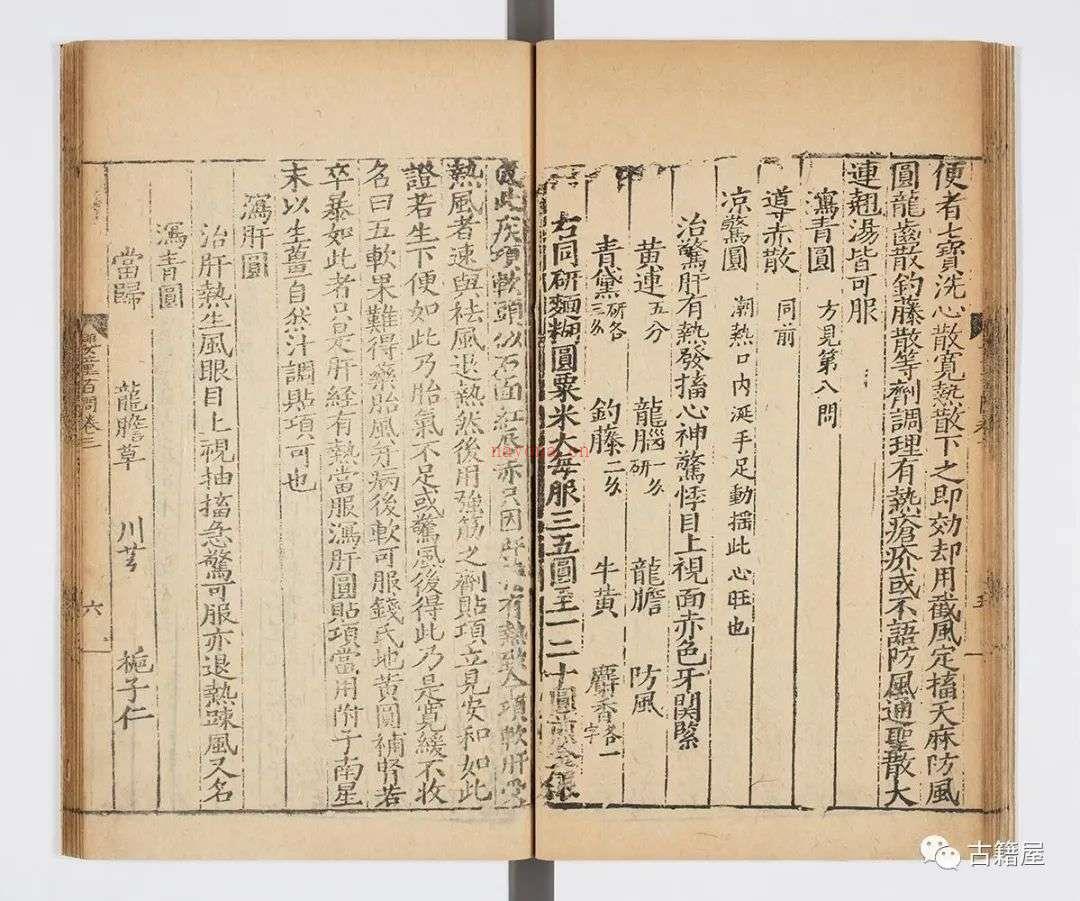 便者七寶洗心散寬熱散下之即効却用截風定搐天麻防風
圓龍齒散釣藤散等劑調理有熱瘡疥或不語防風通聖散大
連翹湯皆可服
瀉青圓 方見第八問
導赤散 同前
凉驚圓 潮熱口内涎手足動揺此心旺也
治驚肝有熱發搐心神驚悸目上視面赤色牙関緊
黄連五分 龍腦研一 龍膽 防風
青黛研各三 釣藤二 牛黄 麝香各一字
右同研麵糊圓粟米大每服三五圓至一二十圓
此疾項軟頭 面紅唇赤 因 有熱 項軟肝受
熱風者速與祛風退熱然後用強筋之劑貼項立見安和如此
證若生下便如此乃胎氣不足或驚風後得此乃是寛緩不收
名曰五軟果難得藥胎風另病後軟可服錢氏地黄圓補腎若
卒暴如此者只是肝經有熱當服瀉肝圓貼項當用附子南星
末以生薑自然汁調貼項可也
瀉肝圓
瀉青圓
治肝熱生風眼目上視抽搐急驚可服亦退熱踈風又名
當歸 龍膽草 川芎 梔子仁
嬰童百問卷三
六
五
nayona.cn
古籍屋